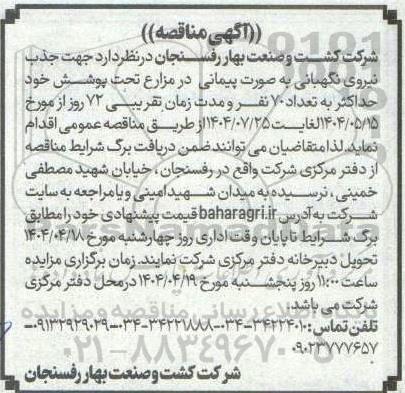 ((آگهی مناقصه))
شرکت کشت و صنعت بهار رفسنجان در نظر دارد جهت جذب
نیروی نگهبانی به صورت پیمانی در مزارع تحت پوشش خود
حداکثر به تعداد ۷۰ نفر و مدت زمان تقریبی ۷۲ روز از مورخ
۱۴۰۴/۰۵/۱۵ لغایت ۱۴۰۴/۰۷/۲۵ از طریق مناقصه عمومی اقدام
نماید. لذا متقاضیان می توانند ضمن دریافت برگ شرایط مناقصه
از دفتر مرکزی شرکت واقع در رفسنجان، خیابان شهید مصطفی
خمینی، نرسیده به میدان شهید امینی و یا مراجعه به سایت
شرکت به آدرس baharagri.ir قیمت پیشنهادی خود را مطابق
برگ شرایط تا پایان وقت اداری روز چهارشنبه مورخ ۱۴۰۴/۰۴/۱۸
تحویل دبیرخانه دفتر مرکزی شرکت نمایند. زمان برگزاری مزایده
ساعت ۱۱:۰۰ روز پنجشنبه مورخ ۱۴۰۴/۰۴/۱۹ در محل دفتر مرکزی
شرکت می باشد.
تلفن تماس: ۳۴۲۲۴۰۱۰-۰۳۴-۳۴۲۲۱۸۸۸-۰۳۴-۰۹۱۳۲۹۲۹۰۲۹-
۰۹۰۲۳۷۷۷۶۵۷
شرکت کشت و صنعت بهار رفسنجان
۰۲۱-۸۸۳۴۹۶۷۰